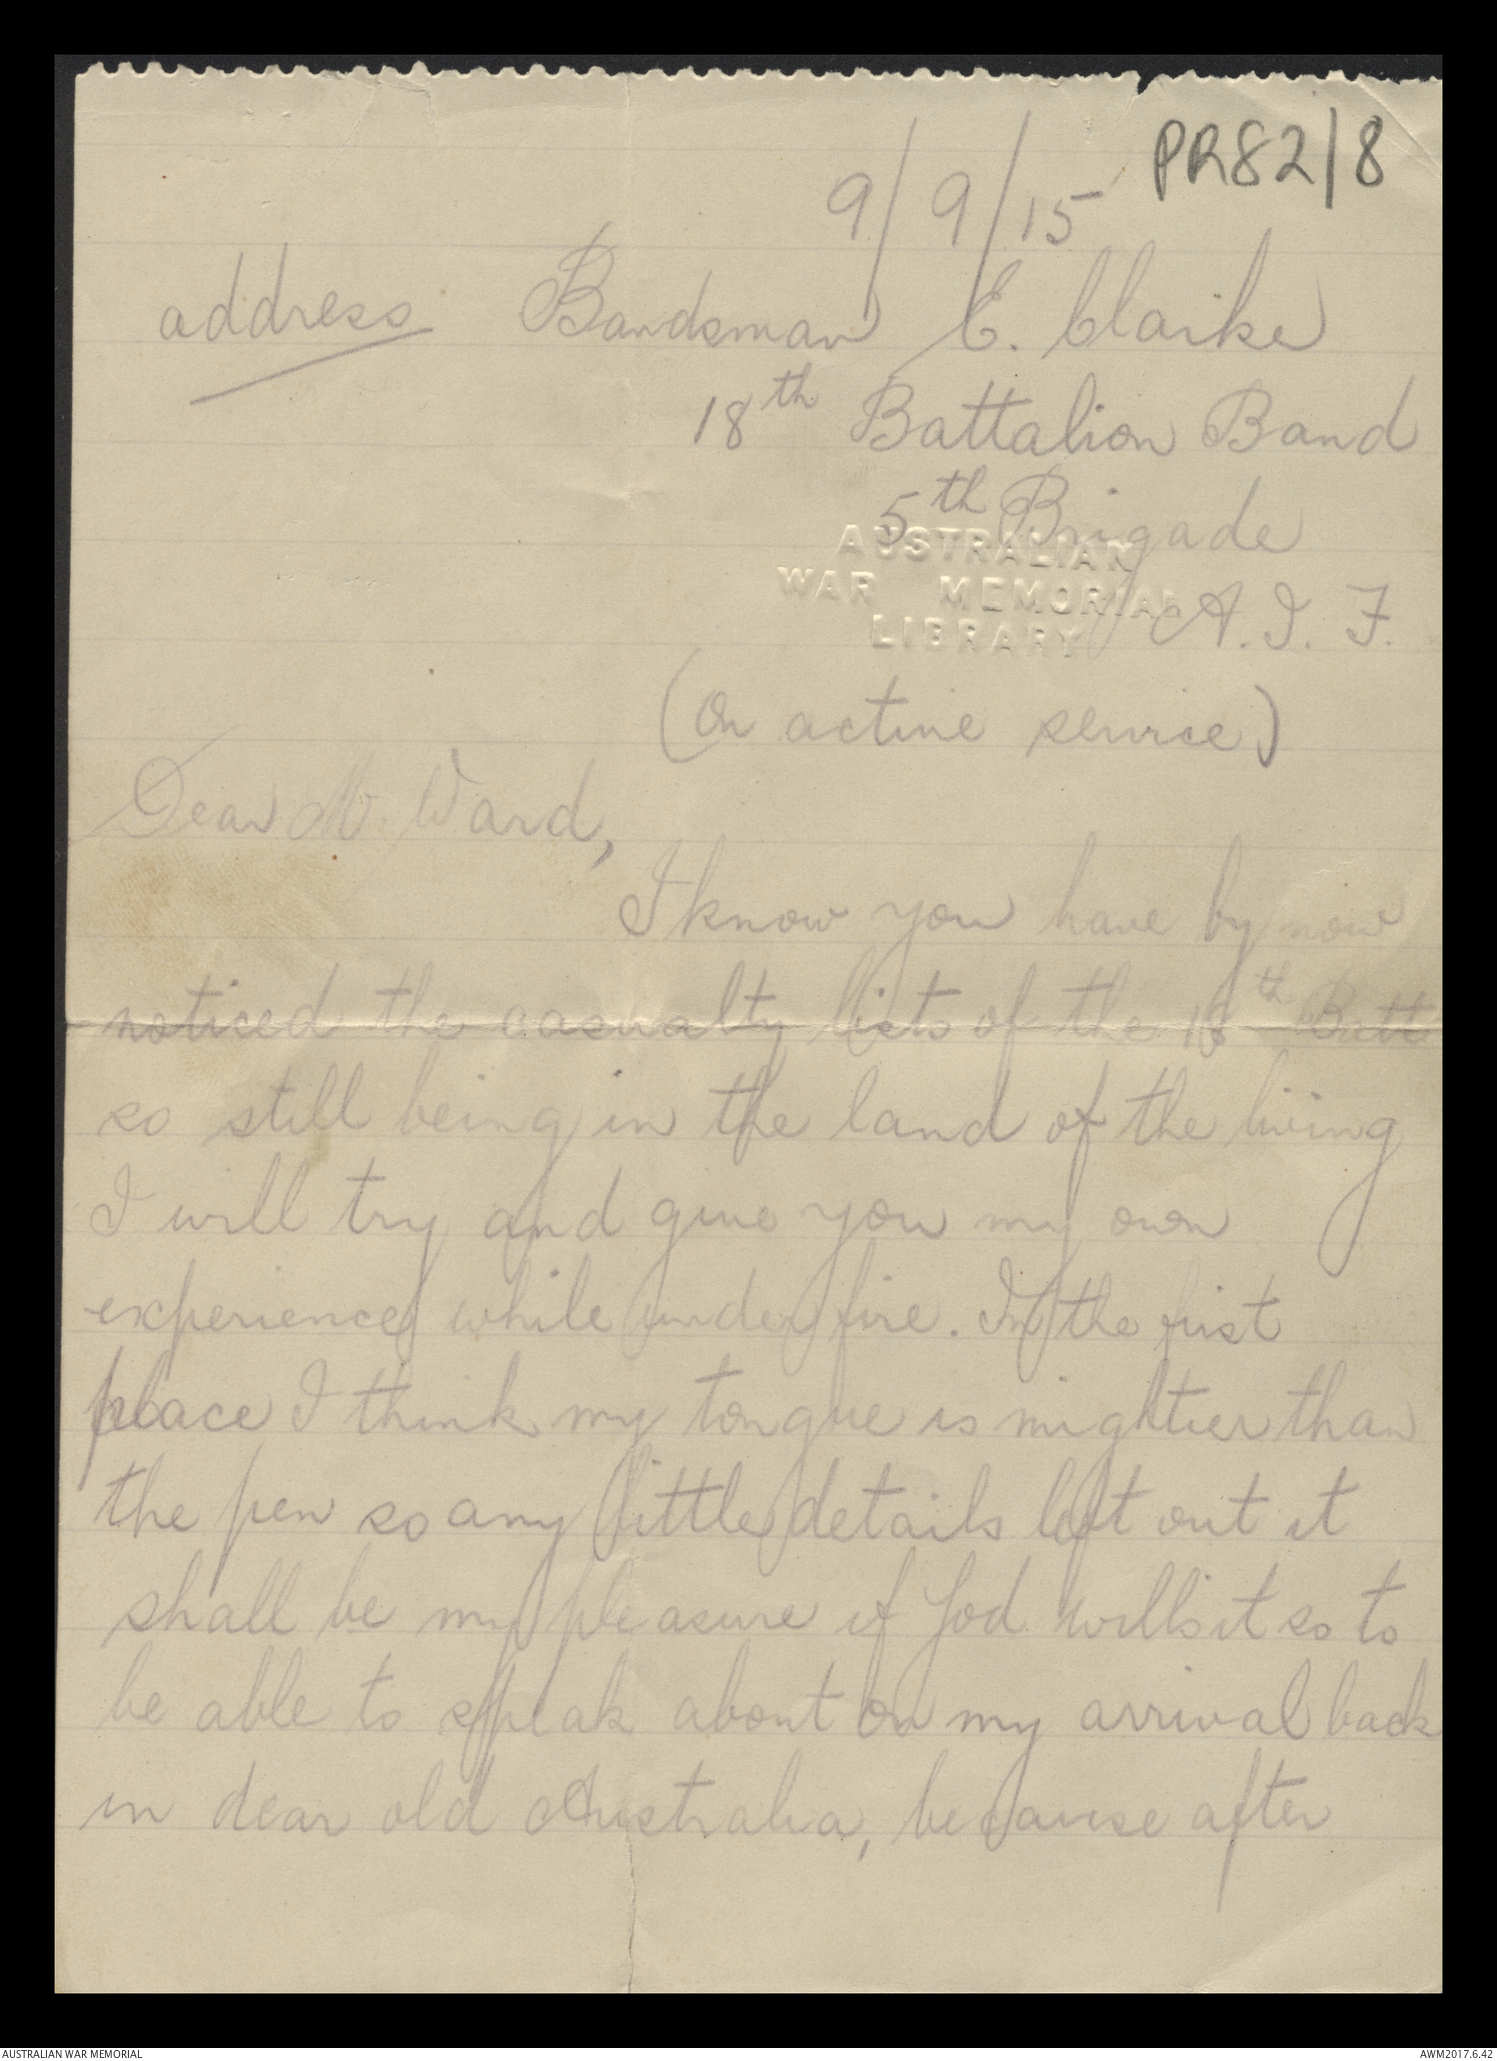 PR82/8
9/9/15
address Bandsman E. Clarke
18th Battalion Band
5th Brigade
AUSTRALIAN
WAR MEMORIAL
LIBRARY
A.I.F.
(On active service)
Dear Mr Ward,
I know you have by now
noticed the casualty lists of the 18th Batt
so still being in the land of the living
I will try and give you my own
experience while under fire. In the first
place I think my tongue is mightier than
the pen so any little details left out it
shall be my pleasure if God wills it so to
be able to speak about on my arrival back
in dear old Australia, because after
AUSTRALIAN WAR MEMORIAL
AWM2017.6.42